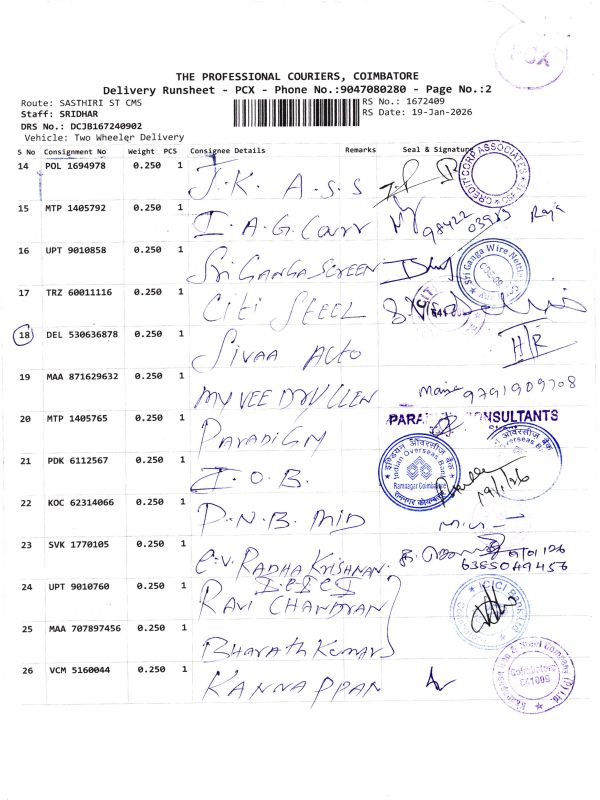 PCX
THE PROFESSIONAL COURIERS, COIMBATORE
Delivery Runsheet - PCX - Phone No.:9047080280 - Page No.:2
Route: SASTHIRI ST CMS
RS No.: 1672409
Staff: SRIDHAR
RS Date: 19-Jan-2026
DRS No.: DCJB167240902
Vehicle: Two Wheeler Delivery
S No Consignment No Weight PCS Consignee Details Remarks Seal & Signature
14 POL 1694978 0.250 1 J.K. A.S.S
CREDIT CORP ASSOCIATES
15 MTP 1405792 0.250 1 I.A.G. 98422 Raja
16 UPT 9010858 0.250 1 Sri GANGA SCREEN
Sri Ganga Wire
17 TRZ 60011116 0.250 1 Citi STEEL
18 DEL 530636878 0.250 1 SIVAA H/R
19 MAA 871629632 0.250 1 9791909708
20 MTP 1405765 0.250 1 PARADIGM
CONSULTANTS
21 PDK 6112567 0.250 1 I.O.B.
इण्डियन ओवरसीज़ बैंक
Indian Overseas Bank
Ramnagar Coimbatore
19/1/26
22 KOC 62314066 0.250 1 P.N.B. MID
23 SVK 1770105 0.250 1 C.V. RADHA KRISHNAN.
6385049456
24 UPT 9010760 0.250 1 RAVI CHANDRAN
ICICI Bank Ltd
25 MAA 707897456 0.250 1 Bharath Kumar
26 VCM 5160044 0.250 1 KANNAPPAN
Coimbatore
641009